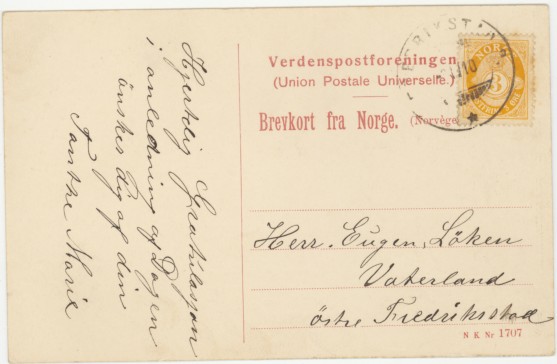 Hjertelig Gratulasjon
i anledning af Dagen
önskes dig af din
Tante Marie
Verdenspostforeningen
(Union Postale Universelle.)
Brevkort fra Norge. (Norvège
NORGE
3
Herr. Eugen, Löken
Vaterland
östre Fredriksstad
N K Nr 1707